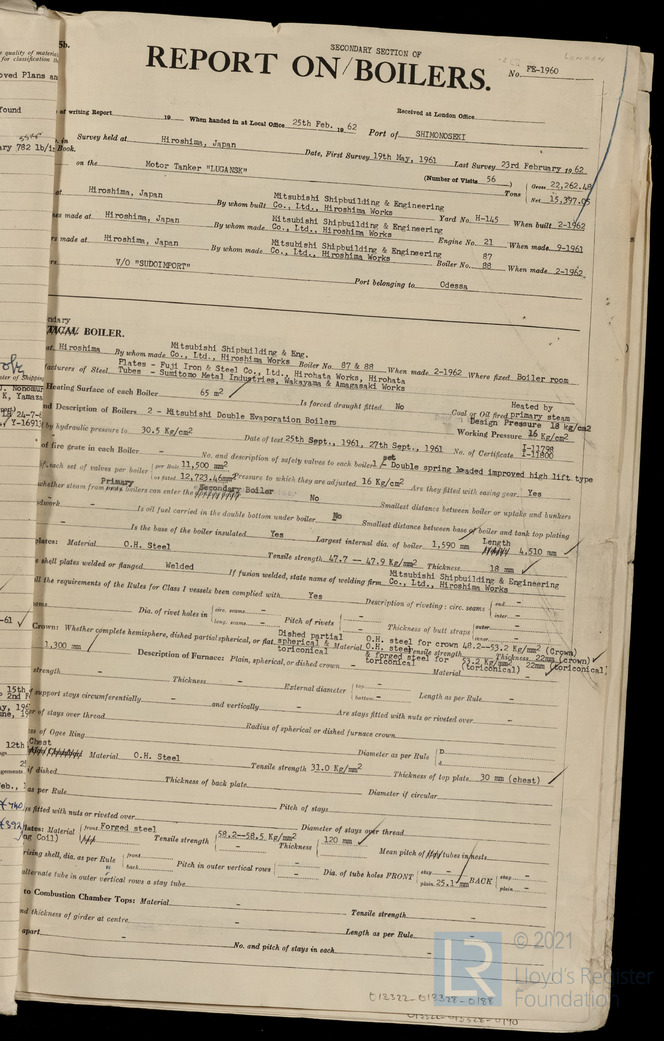 5b.
SECONDARY SECTION OF
REPORT ON BOILERS.
No. FE-1960
LONDON
Received at London Office
of writing Report 19 When handed in at Local Office 25th Feb. 1962 Port of SHIMONOSEKI
Survey held at Hiroshima, Japan Date, First Survey 19th May, 1961 Last Survey 23rd February 1962
Book.
(Number of Visits 56 )
on the Motor Tanker "LUGANSK" Tons Gross 22,262.48
Net 15,397.05
at Hiroshima, Japan By whom built Mitsubishi Shipbuilding & Engineering Co., Ltd., Hiroshima Works Yard No. H-145 When built 2-1962
es made at Hiroshima, Japan By whom made Mitsubishi Shipbuilding & Engineering Co., Ltd., Hiroshima Works Engine No. 21 When made 9-1961
s made at Hiroshima, Japan By whom made Mitsubishi Shipbuilding & Engineering Co., Ltd., Hiroshima Works Boiler No. 87 88 When made 2-1962
V/O "SUDOIMPORT" Port belonging to Odessa
ndary
BOILER.
at Hiroshima By whom made Mitsubishi Shipbuilding & Eng. Co., Ltd., Hiroshima Works Boiler No. 87 & 88 When made 2-1962 Where fixed Boiler room
facturers of Steel Plates - Fuji Iron & Steel Co., Ltd., Hirohata Works, Hirohata
Tubes - Sumitomo Metal Industries, Wakayama & Amagasaki Works
Heating Surface of each Boiler 65 m2 Is forced draught fitted No Coal or Oil fired Heated by primary steam
nd Description of Boilers 2 - Mitsubishi Double Evaporation Boilers Design Pressure 18 kg/cm2
Working Pressure 16 Kg/cm2
by hydraulic pressure to 30.5 Kg/cm2 Date of test 25th Sept., 1961, 27th Sept., 1961 No. of Certificate I-11798 I-11800
of fire grate in each Boiler - No. and description of safety valves to each boiler 1 set - Double spring loaded improved high lift type
of each set of valves per boiler per Rule 11,500 mm2
as fitted 12,723.46mm2 Pressure to which they are adjusted 16 Kg/cm2 Are they fitted with easing gear Yes
whether steam from Primary boilers can enter the Secondary Boiler No Smallest distance between boiler or uptake and bunkers
- Is oil fuel carried in the double bottom under boiler No Smallest distance between base of boiler and tank top plating
- Is the base of the boiler insulated Yes Largest internal dia. of boiler 1,590 mm Length 4,510 mm
plates: Material O.H. Steel Tensile strength 47.7 -- 47.9 Kg/mm2 Thickness 18 mm
e shell plates welded or flanged Welded If fusion welded, state name of welding firm Mitsubishi Shipbuilding & Engineering Co., Ltd., Hiroshima Works
ll the requirements of the Rules for Class I vessels been complied with Yes Description of riveting: circ. seams end -
inter. -
eams Dia. of rivet holes in circ. seams -
long. seams - Pitch of rivets - Thickness of butt straps outer -
inner -
Crown: Whether complete hemisphere, dished partial spherical, or flat Dished partial spherical & toriconical Material O.H. steel for crown & forged steel for toriconical Tensile strength 48.2--53.2 Kg/mm2 (Crown) 53.2 Kg/mm2 (toriconical) Thickness 22mm (crown) 22mm (toriconical)
1,300 mm Description of Furnace: Plain, spherical, or dished crown - Material -
strength - Thickness - External diameter top -
bottom - Length as per Rule -
f support stays circumferentially - and vertically - Are stays fitted with nuts or riveted over -
er of stays over thread - Radius of spherical or dished furnace crown -
ss of Ogee Ring - Diameter as per Rule D
d
Chest Material O.H. Steel Tensile strength 31.0 Kg/mm2 Thickness of top plate 30 mm (chest)
if dished - Thickness of back plate - Diameter if circular -
as per Rule - Pitch of stays -
ys fitted with nuts or riveted over - Diameter of stays over thread -
lates: Material front Forged steel Tensile strength 58.2--58.5 Kg/mm2 Thickness 120 mm Mean pitch of tubes in nests -
rising shell, dia. as per Rule front -
back - Pitch in outer vertical rows - Dia. of tube holes FRONT stay -
plain 25.1 mm BACK stay -
plain -
alternate tube in outer vertical rows a stay tube -
to Combustion Chamber Tops: Material - Tensile strength -
nd thickness of girder at centre - Length as per Rule -
apart - No. and pitch of stays in each -
© 2021
Lloyd's Register
Foundation
LR
012322-012328-0188
012322-012328-0190